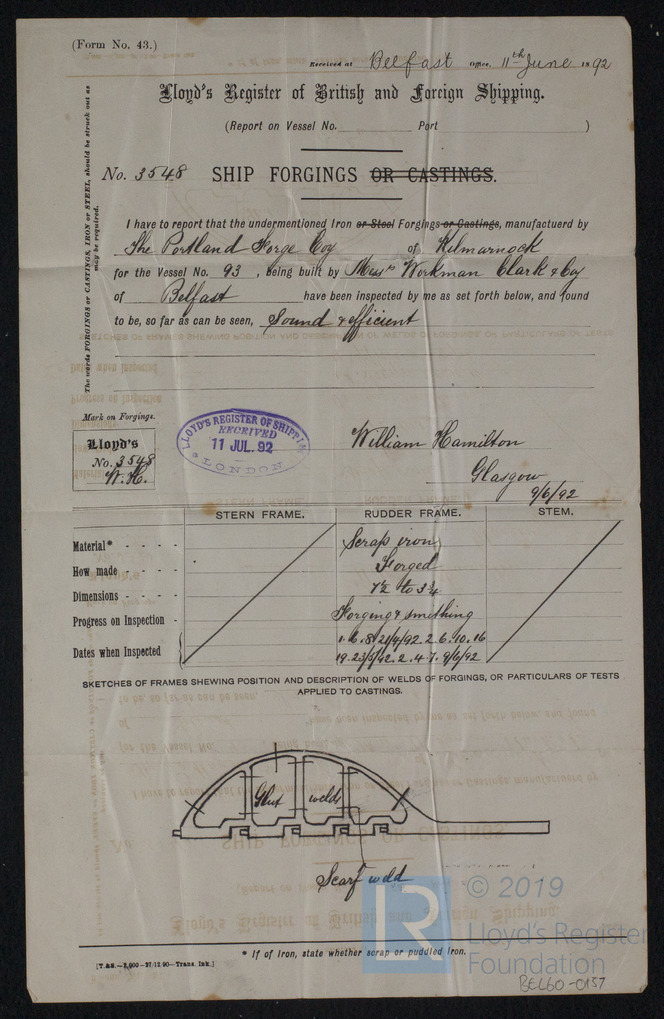 (Form No. 43.)
Received at Belfast Office, 11th June 1892
Lloyd's Register of British and Foreign Shipping.
(Report on Vessel No. Port )
No. 3548 SHIP FORGINGS OR CASTINGS.
The words FORGINGS or CASTINGS, IRON or STEEL, should be struck out as
may be required.
I have to report that the undermentioned Iron or Steel Forgings or Castings, manufactuerd by
The Portland Forge Coy of Kilmarnock
for the Vessel No. 93, being built by Messrs Workman Clark & Coy
of Belfast have been inspected by me as set forth below, and found
to be, so far as can be seen, Sound & efficient
Mark on Forgings.
Lloyd's
No. 3548
W.H.
LLOYD'S REGISTER OF SHIPPING
RECEIVED
11 JUL. 92
LONDON
William Hamilton
Glasgow
9/6/92
STERN FRAME. RUDDER FRAME. STEM.
Material* - - - - Scrap iron
How made - - - - Forged
Dimensions - - - - 7½ to 3¾
Progress on Inspection - Forging & smithing
Dates when Inspected 1. 6. 8. 21/4/92. 2. 6. 10. 16
19. 23/5/92. 2. 4. 7. 9/6/92
SKETCHES OF FRAMES SHEWING POSITION AND DESCRIPTION OF WELDS OF FORGINGS, OR PARTICULARS OF TESTS
APPLIED TO CASTINGS.
Glut welds
Scarf weld
* If of Iron, state whether scrap or puddled iron.
[T. & S.—3,000—27/12 90—Trans. Ink.]
LR
© 2019
Lloyd's Register
Foundation
BEL60-0157